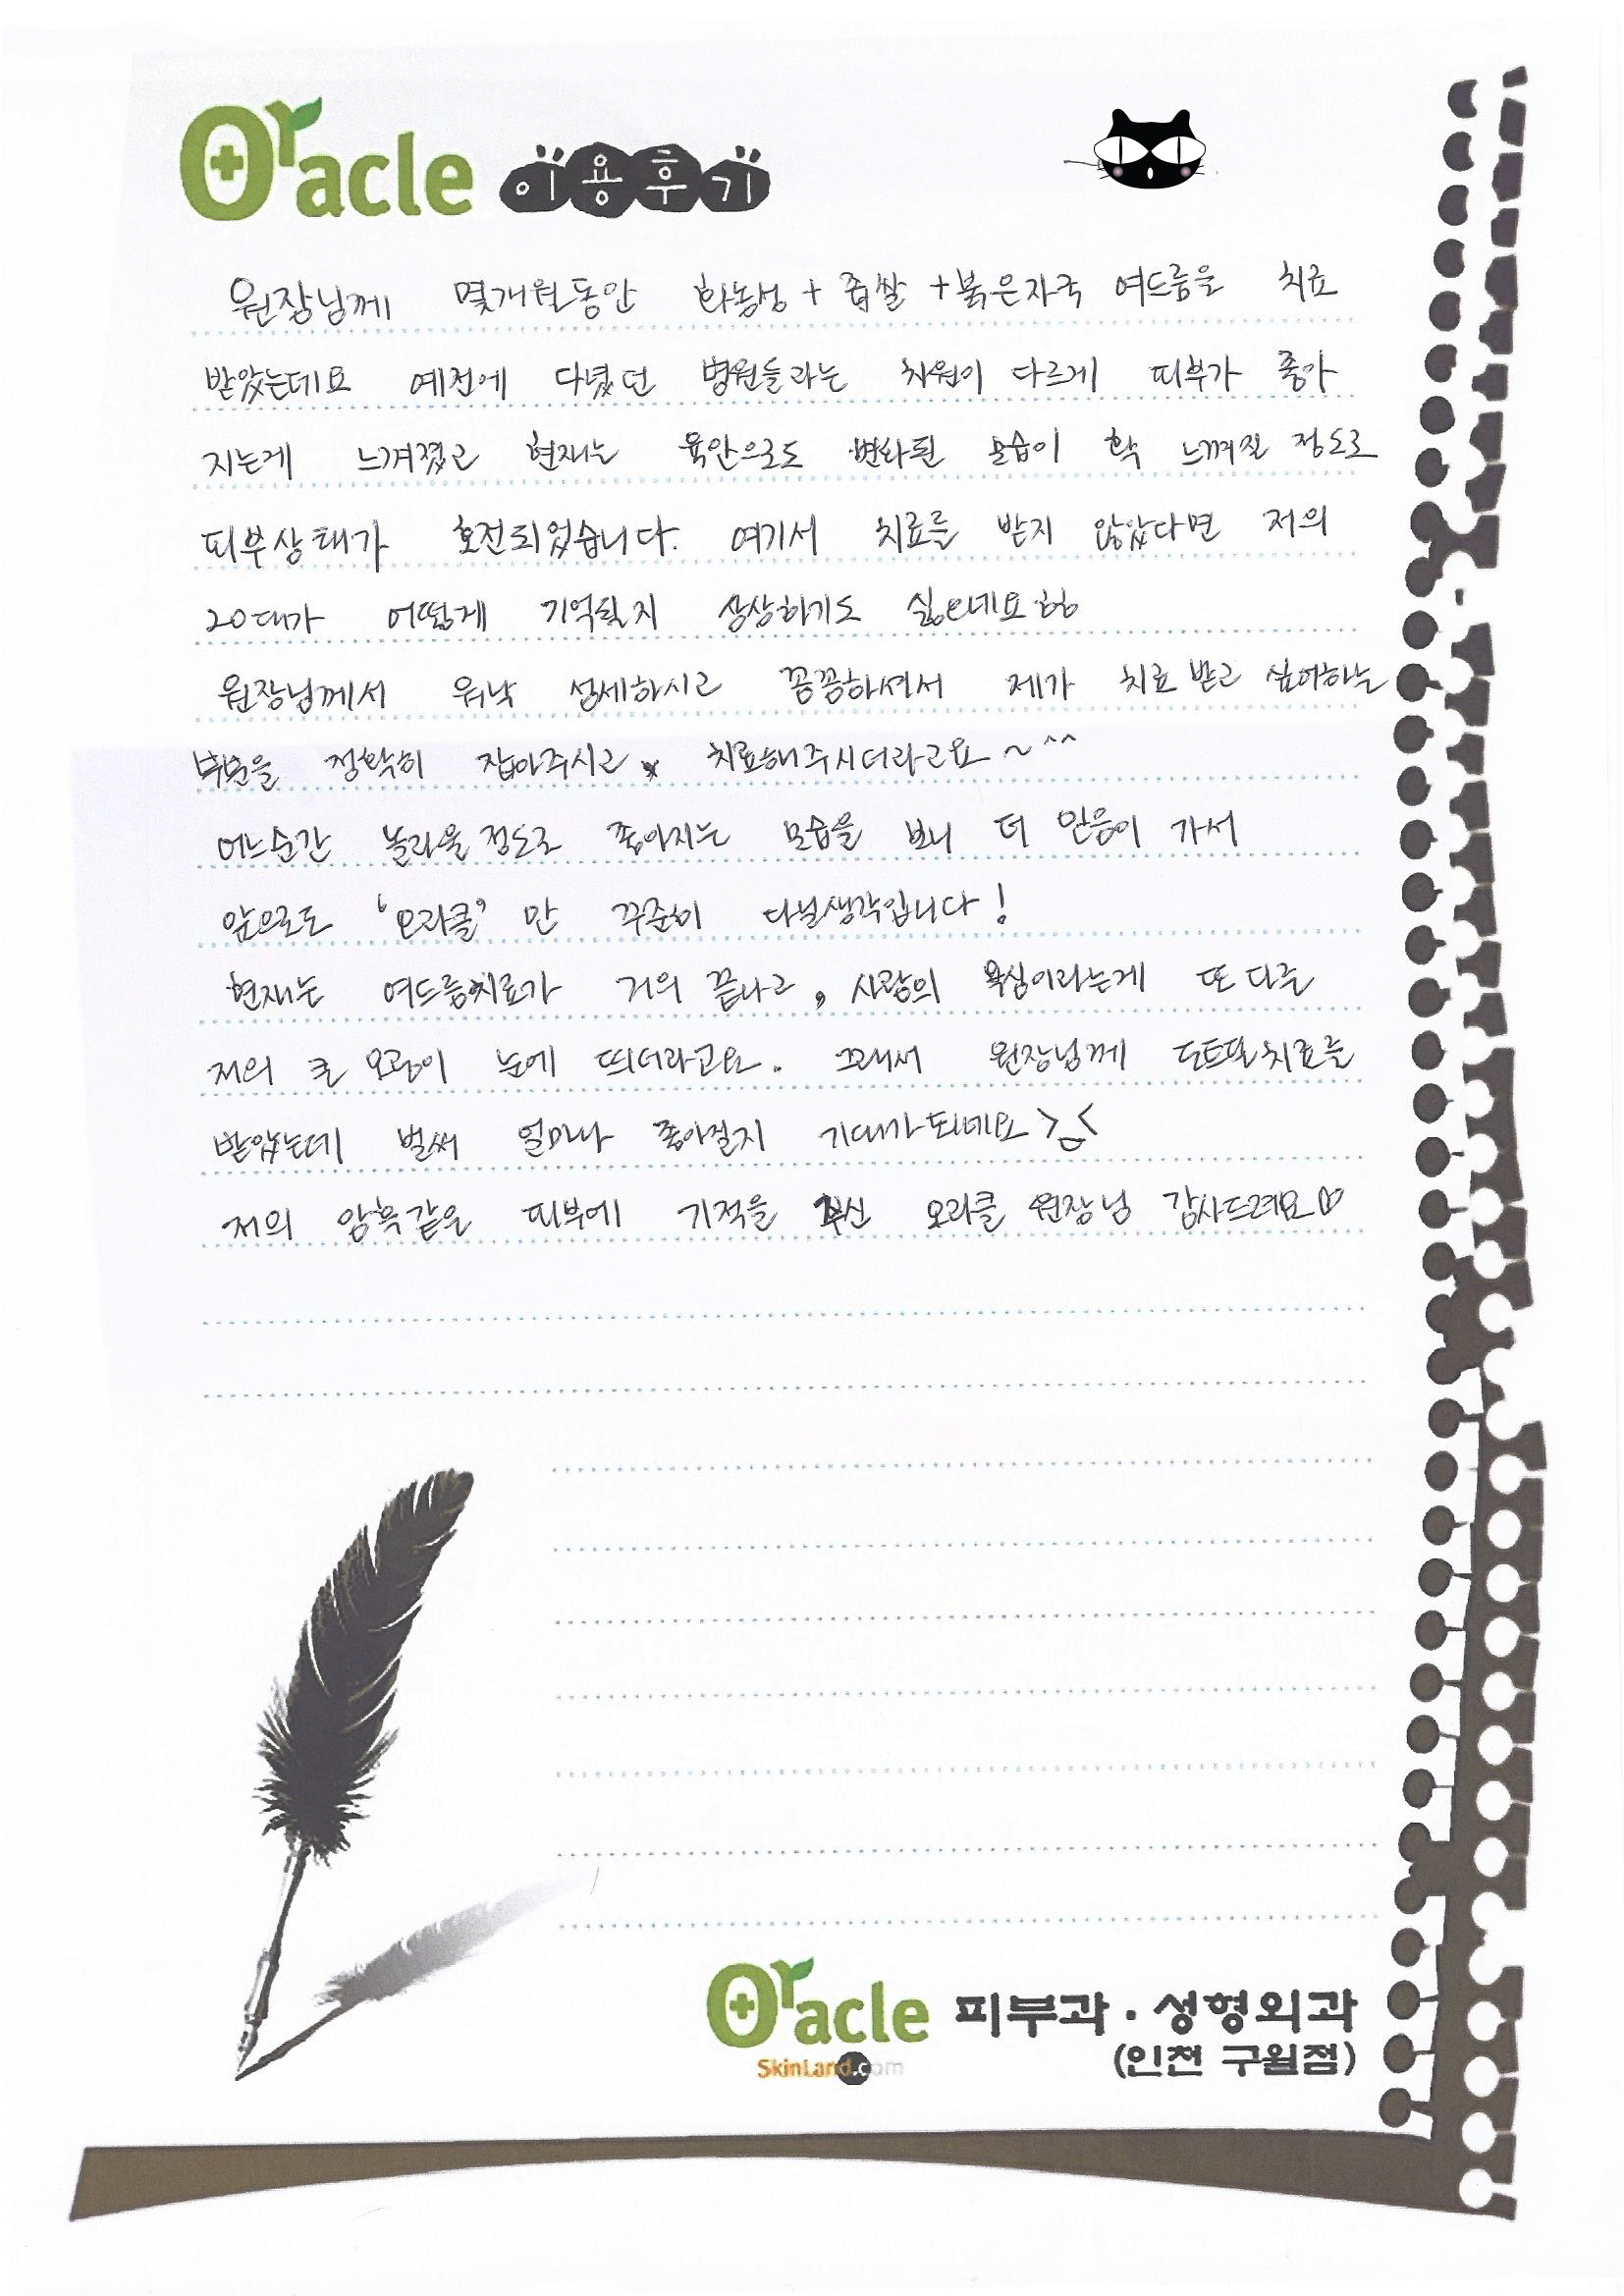 Oracle 이용후기
원장님께 몇개월동안 화농성 + 좁쌀 + 붉은자국 여드름을 치료
받았는데요 예전에 다녔던 병원들과는 차원이 다르게 피부가 좋아
지는게 느껴졌고 현재는 육안으로도 변화된 모습이 확 느껴질 정도로
피부상태가 호전되었습니다. 여기서 치료를 받지 않았다면 저의
20대가 어떻게 기억될지 상상하기도 싫은네요 ㅎㅎ
원장님께서 워낙 섬세하시고 꼼꼼하셔서 제가 치료 받고 싶어하는
부분을 정확히 잡아주시고 치료해주시더라고요 ~ ^^
어느순간 놀라울 정도로 좋아지는 모습을 보니 더 믿음이 가서
앞으로도 '오라클' 만 꾸준히 다닐생각입니다!
현재는 여드름치료가 거의 끝나고, 사람의 욕심이라는게 또 다른
저의 큰 모공이 눈에 띄더라고요. 그래서 원장님께 도트필치료를
받았는데 벌써 얼마나 좋아질지 기대가되네요 >_<
저의 암흑같은 피부에 기적을 주신 오라클 원장님 감사드려요♡
Oracle 피부과 · 성형외과
SkinLand.com (인천 구월점)